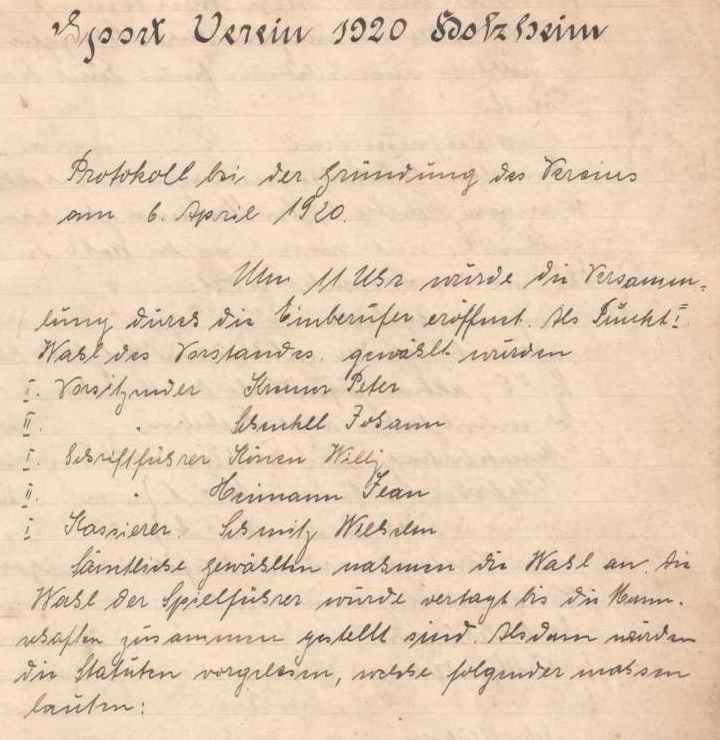 Sport Verein 1920 Holzheim
Protokoll bei der Gründung des Vereins
am 6. April 1920.
Um 11 Uhr wurde die Versamm-
lung durch die Einberufer eröffnet. Als Punkt I.
Wahl des Vorstandes. gewählt wurden
I. Vorsitzender Peter
II. " Johann
I. Schriftführer Könen Willy
II. " Heimann Jean
I Kassierer. Schmitz Wilhelm
Sämtliche gewählten nahmen die Wahl an. Die
Wahl der Spielführer wurde vertagt bis die Mann-
schaften zusammen gestellt sind. Alsdann wurden
die Statuten vorgelesen, welche folgender massen
lauten: